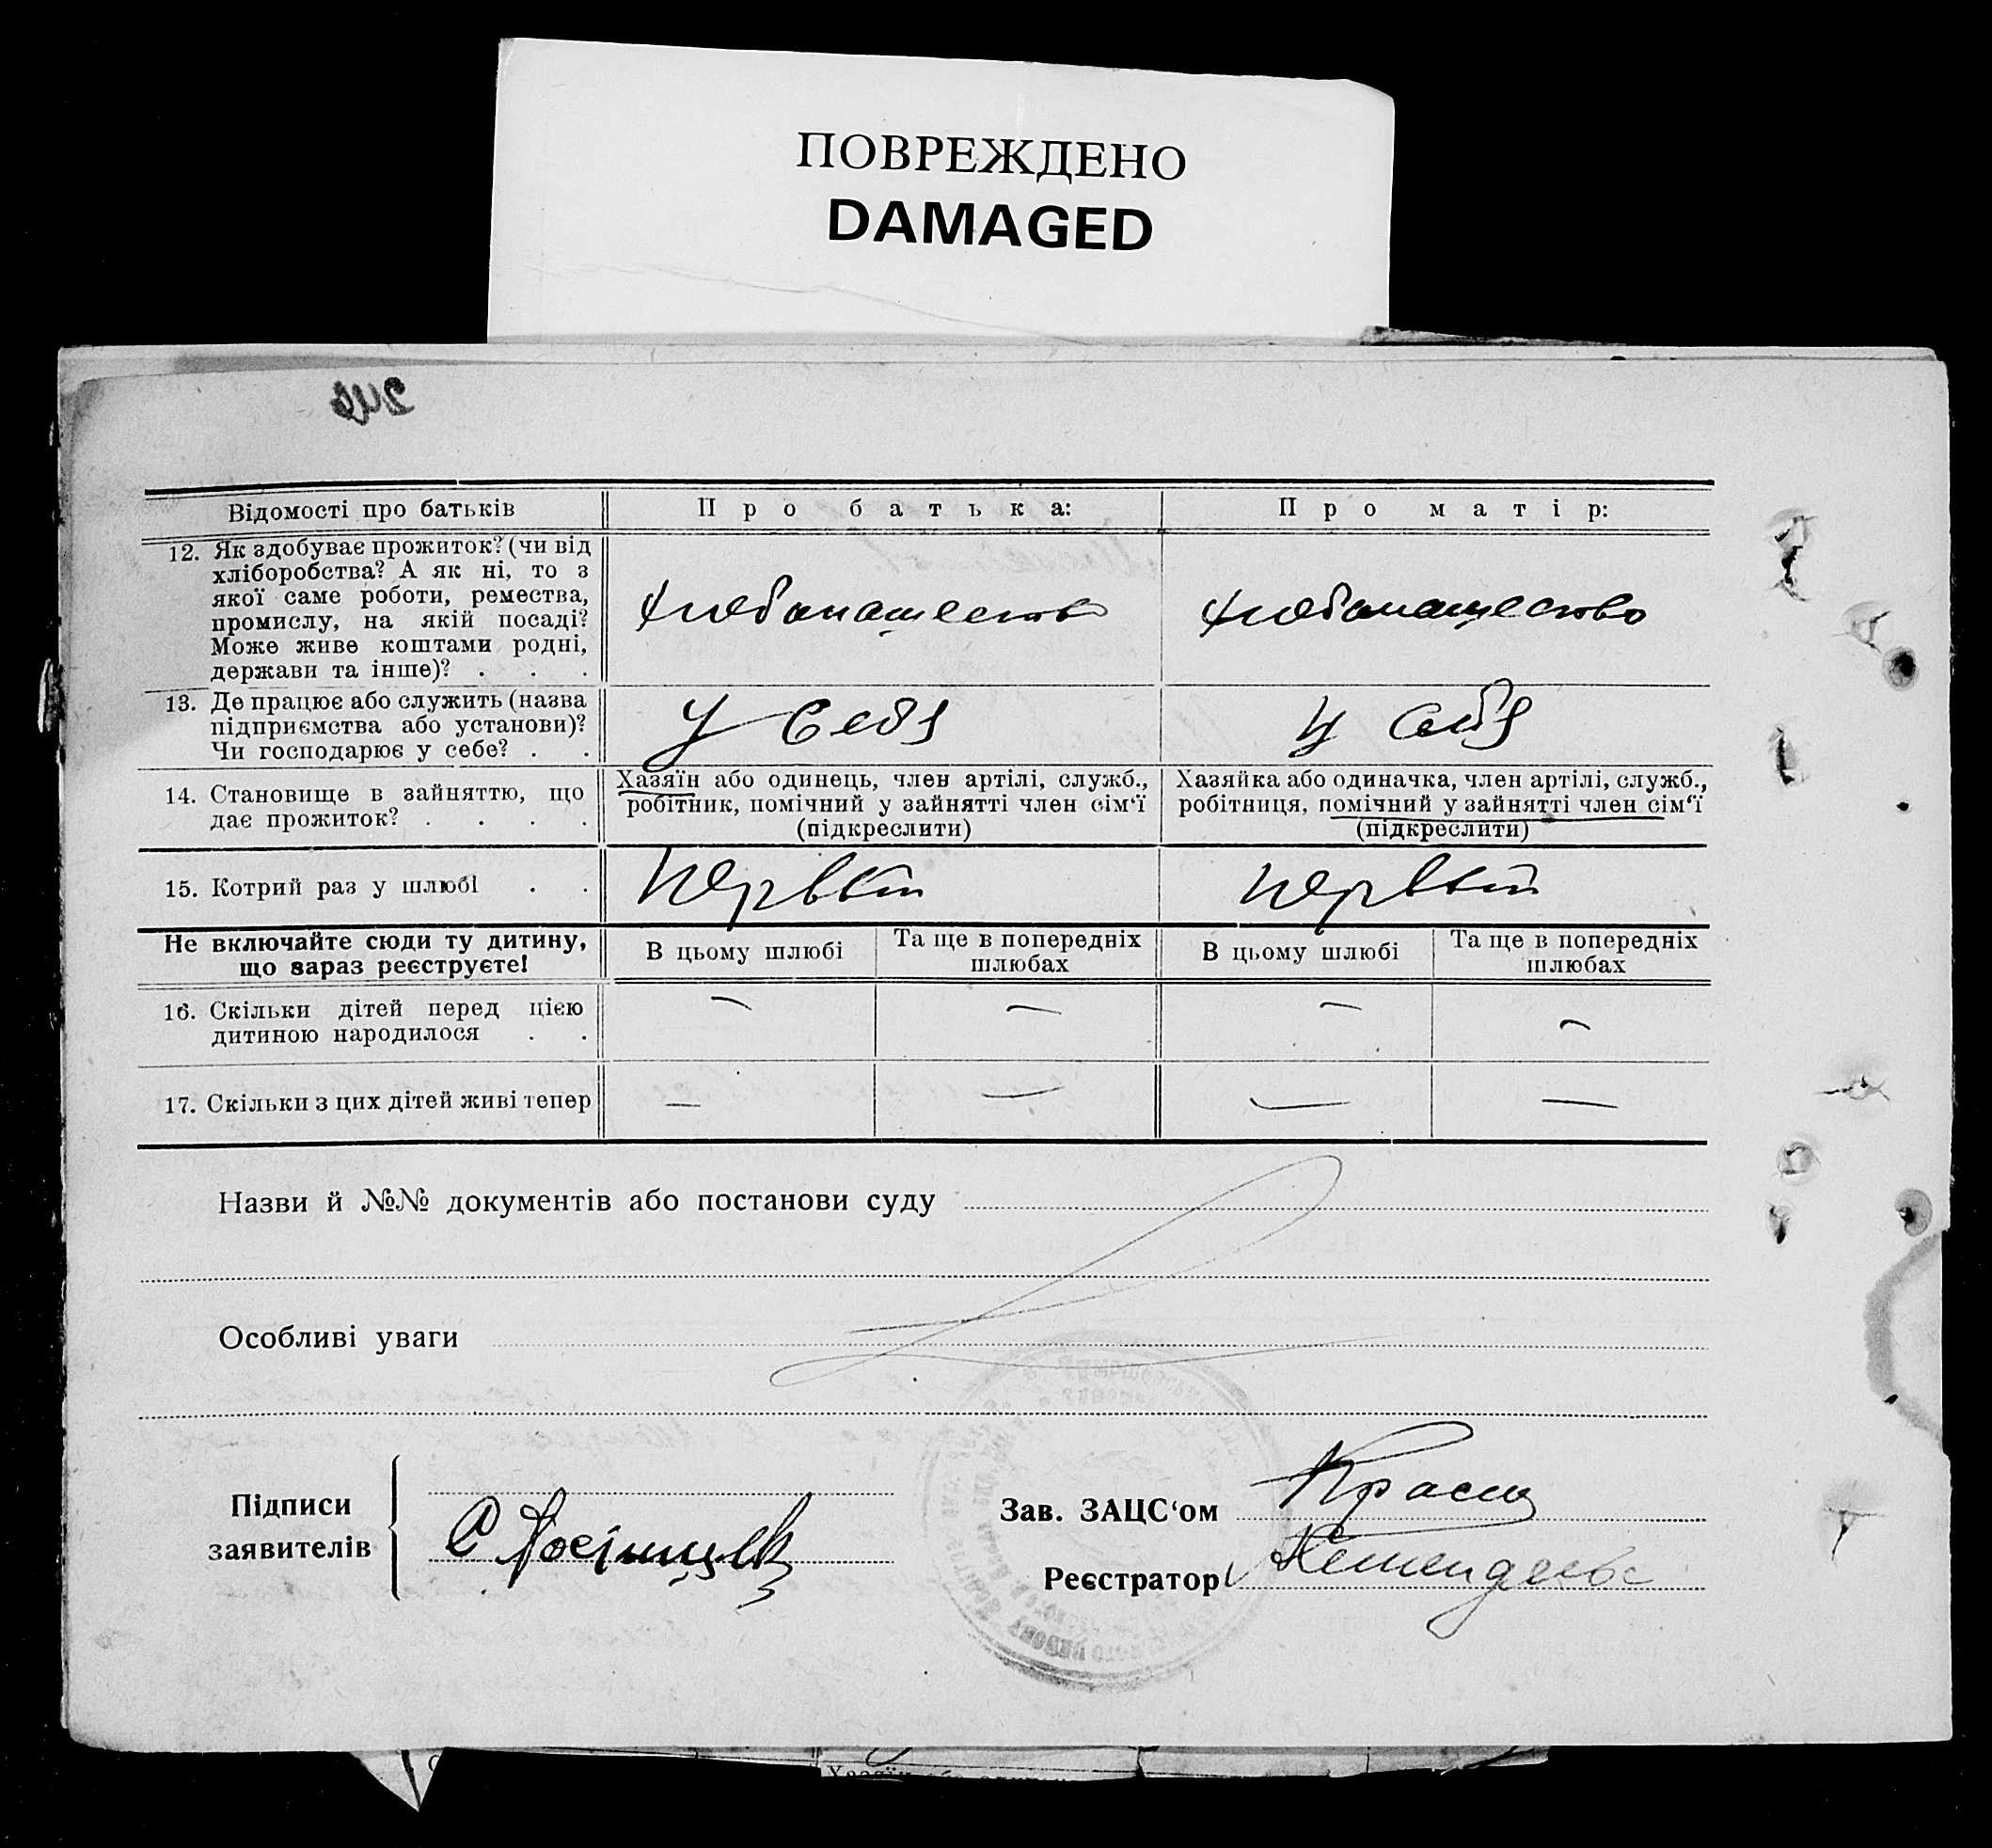 ПОВРЕЖДЕНО
DAMAGED
Відомості про батьків
Про батька:
Про матір:
12. Як здобуває прожиток? (чи від
хліборобства? А як ні, то з
якої саме роботи, ремества,
промислу, на якій посаді?
Може живе коштами родні,
держави та інше)? . . .
хлебопашество
хлебопашество
13. Де працює або служить (назва
підприємства або установи)?
Чи господарює у себе? . .
у себя
у себя
14. Становище в зайняттю, що
дає прожиток? . . . .
Хазяїн або одинець, член артілі, служб.,
робітник, помічний у зайнятті член сім‘ї
(підкреслити)
Хазяйка або одиначка, член артілі, служб.,
робітниця, помічний у зайнятті член сім‘ї
(підкреслити)
15. Котрий раз у шлюбі . .
первый
первый
Не включайте сюди ту дитину,
що зараз реєструєте!
В цьому шлюбі
Та ще в попередніх
шлюбах
В цьому шлюбі
Та ще в попередніх
шлюбах
16. Скільки дітей перед цією
дитиною народилося . .
— — — —
17. Скільки з цих дітей живі тепер
— — — —
Назви й №№ документів або постанови суду
Особливі уваги
Підписи
заявителів
Зав. ЗАЦС‘ом
Реєстратор